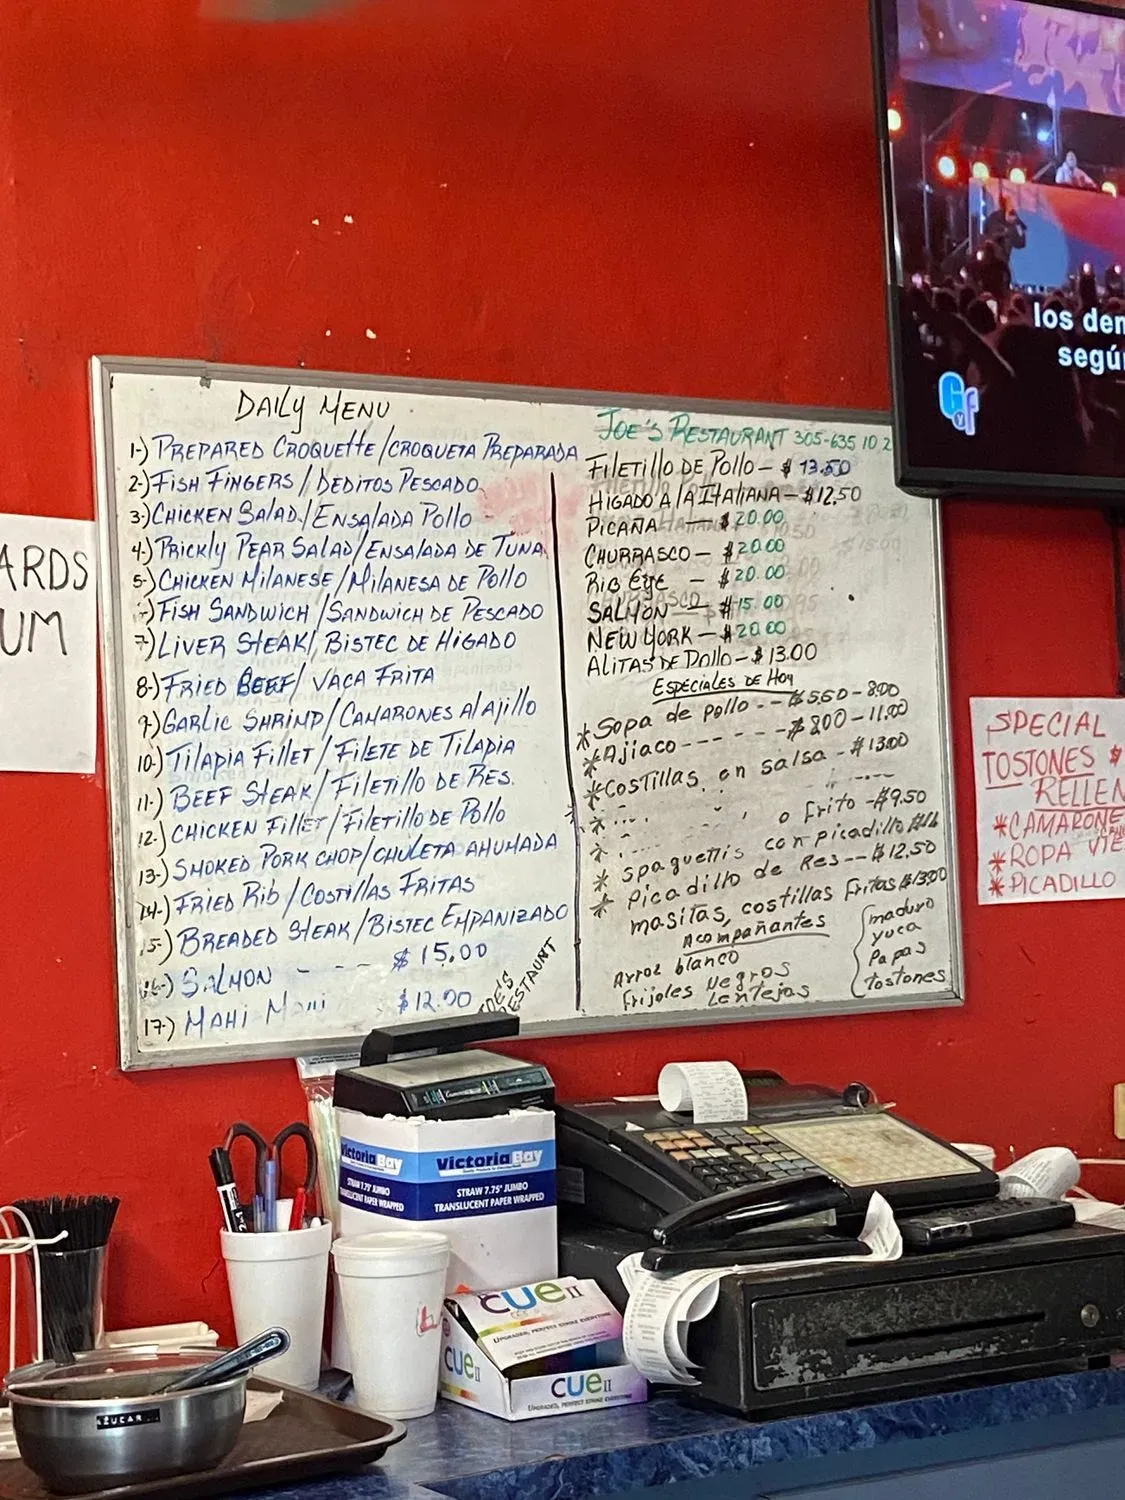 DAILY MENU
1-) PREPARED CROQUETTE/CROQUETA PREPARADA
2-) FISH FINGERS/DEDITOS PESCADO
3-) CHICKEN SALAD/ENSALADA POLLO
4-) PRICKLY PEAR SALAD/ENSALADA DE TUNA
5-) CHICKEN MILANESE/MILANESA DE POLLO
FISH SANDWICH/SANDWICH DE PESCADO
7-) LIVER STEAK/BISTEC DE HIGADO
8-) FRIED BEEF/VACA FRITA
9-) GARLIC SHRIMP/CAMARONES AL AJILLO
10-) TILAPIA FILLET/FILETE DE TILAPIA
11-) BEEF STEAK/FILETILLO DE RES.
12-) CHICKEN FILLET/FILETILLO DE POLLO
13-) SMOKED PORK CHOP/CHULETA AHUMADA
14-) FRIED RIB/COSTILLAS FRITAS
15-) BREADED STEAK/BISTEC EMPANIZADO
16-) SALMON - - - - $15.00
17-) MAHI MAHI $12.00
JOE'S RESTAUNT
JOE'S RESTAURANT 305-635 10 2
FILETILLO DE POLLO - $13.50
HIGADO A/A ITALIANA - $12.50
PICAÑA - $20.00
CHURRASCO - $20.00
RIB EYE - $20.00
SALMON - $15.00
NEW YORK - $20.00
ALITAS DE POLLO - $13.00
ESPECIALES DE HOY
*Sopa de pollo - - $5.50 - 8.00
*Ajiaco - - - - - - $8.00 - 11.00
*Costillas en salsa - $13.00
* o frito - $9.50
* spaguettis con picadillo
* Picadillo de Res - - - $12.50
masitas, costillas fritas $13.00
Acompañantes
Arroz blanco
Frijoles Negros
Lentejas
maduro
yuca
Papas
tostones
ARDS
UM
los dem
segú
G y f
SPECIAL
TOSTONES $
RELLEN
*CAMARONE
*ROPA VIE
*PICADILLO
VictoriaBay
VictoriaBay
STRAW 7.75" JUMBO
TRANSLUCENT PAPER WRAPPED
STRAW 7.75" JUMBO
TRANSLUCENT PAPER WRAPPED
CUE II
UPGRADED, PERFECT STRIKE EVERYTIME
CUE II
CUE II
UPGRADED, PERFECT STRIKE EVERYTIME
AZUCAR